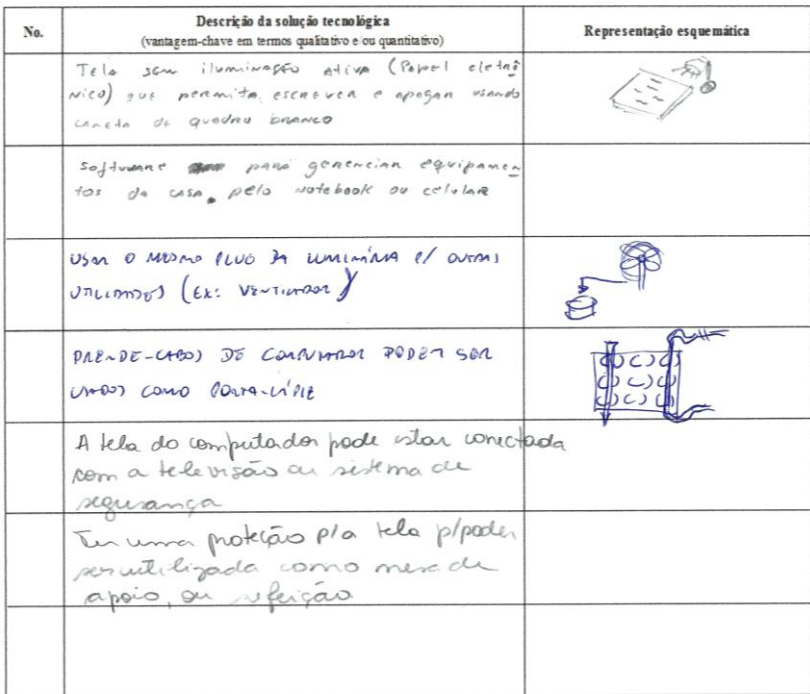 No.
Descrição da solução tecnológica
(vantagem-chave em termos qualitativo e/ou quantitativo)
Representação esquemática
Tela sem iluminação ativa (Papel eletrô
nico) que permita escrever e apagar usando
caneta de quadro branco
Software para gerenciar equipamen
tos da casa, pelo notebook ou celular
USAR O MESMO PLUG DA LUMINÁRIA P/ OUTRAS
UTILIDADES (EX: VENTILADOR)
PRENDE-CABOS DE COMPUTADOR PODEM SER
USADOS COMO PORTA-LÁPIS
A tela do computador pode estar conectada
com a televisão ou sistema de
segurança
Ter uma proteção p/a tela p/poder
ser utilizada como mesa de
apoio, ou refeição